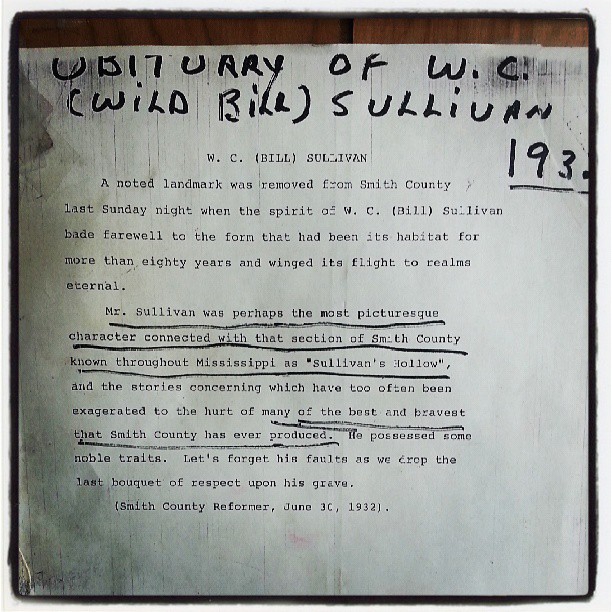 OBITUARY OF W. C.
(WILD BILL) SULLIVAN
193
W. C. (BILL) SULLIVAN
A noted landmark was removed from Smith County
last Sunday night when the spirit of W. C. (Bill) Sullivan
bade farewell to the form that had been its habitat for
more than eighty years and winged its flight to realms
eternal.
Mr. Sullivan was perhaps the most picturesque
character connected with that section of Smith County
known throughout Mississippi as "Sullivan's Hollow",
and the stories concerning which have too often been
exagerated to the hurt of many of the best and bravest
that Smith County has ever produced. He possessed some
noble traits. Let's forget his faults as we drop the
last bouquet of respect upon his grave.
(Smith County Reformer, June 30, 1932).